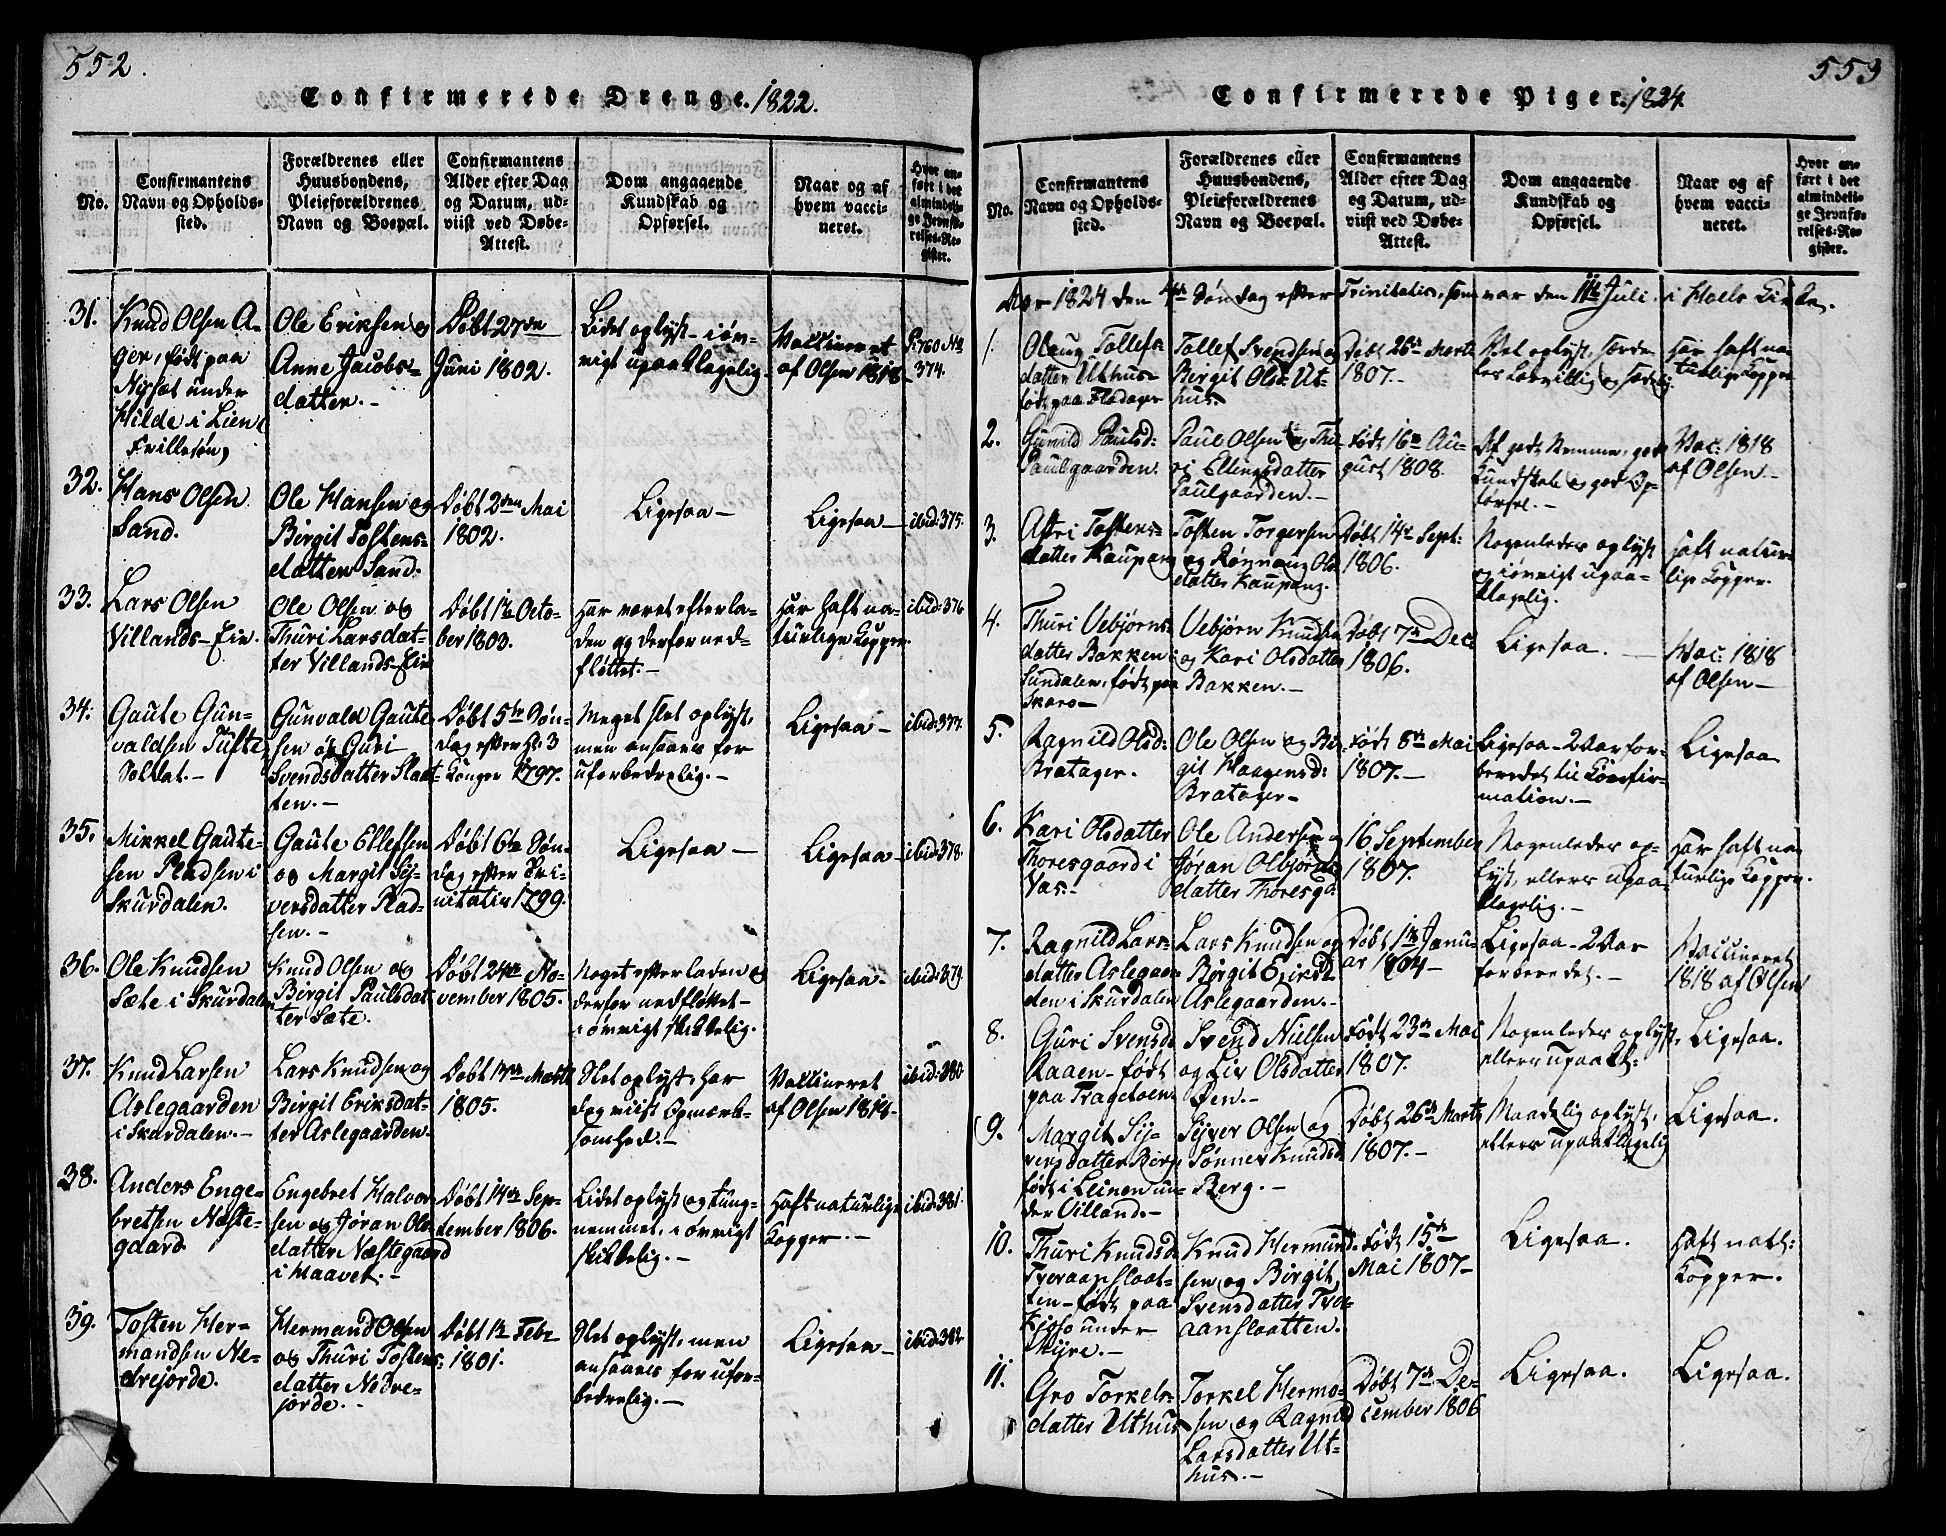 552.
Confirmerede Drenge. 1822.
No.
Confirmantens
Navn og Opholds-
sted.
Forældrenes eller
Huusbondens,
Pleieforældrenes
Navn og Boepæl.
Confirmantens
Alder efter Dag
og Datum, ud-
viist ved Døbe-
Attest.
Dom angaaende
Kundskab og
Opførsel.
Naar og af
hvem vacci-
neret.
Hvor an-
ført i det
almindeli-
ge Jevnfø-
relses-Re-
gister.
31.
Knud Olsen A-
ger, født paa
Nysæt under
Hilde i Lien
Frillesøn,
Ole Eriksen og
Anne Jacobs-
datter.-
Døbt 27de
Juni 1802.
Lidet oplyst - iøv-
rigt upaaklagelig.
Vaccineret
af Olsen 1818-
P. 760 No
374.
32.
Hans Olsen
Sand.
Ole Hansen og
Birgit Tostens-
datter Sand.
Døbt 2den Mai
1802.
Ligesaa-
Ligesaa-
ibid: 375.
33.
Lars Olsen
Villands-Eie.
Ole Olsen og
Thuri Larsdat-
ter Villands-Eie
Døbt 1ste Octo-
ber 1803.
Har været efterla-
den og derfor ned-
fløttet.-
Har haft na-
turlige Kopper.
ibid: 376.
34.
Gaute Gun-
valdsen Tufte
Soldat.-
Gunvald Gaute-
sen og Guri
Svendsdatter Slaat-
ten.-
Døbt 5te Søn-
dag efter Hl. 3
Konger 1797.
Meget slet oplyst,
men ansaaes for
uforbederlig.-
Ligesaa-
ibid: 377.
35.
Mikkel Gaute-
sen Pladsen i
Skurdalen.
Gaute Ellefsen
og Margit Sij-
versdatter Plad-
sen.-
Døbt 6te Søn-
dag efter Tri-
nitatis 1799.
Ligesaa-
Ligesaa-
ibid: 378.
36.
Ole Knudsen
Sæte i Skurdalen
Knud Olsen og
Birgit Paulsdat-
ter Sæte.
Døbt 24de No-
vember 1805.
Noget efterladen og
derfor nedfløttet-
iøvrigt skikkelig.
Ligesaa.
ibid: 379.
37.
Knud Larsen
Aslegaarden
i Skurdalen.-
Lars Knudsen og
Birgit Eriksdat-
ter Aslegaarden.
Døbt 17de Marti
1805.
Slet oplyst, har
dog viist Opmærk-
somhed.-
Vaccineret
af Olsen 1814-
ibid: 380
38.
Anders Enge-
bretsen Næste-
gaard
Engebret Halvor-
sen og Jøran Ols-
datter Næstegaard
i Maavet.-
Døbt 14de Sep-
tember 1806.
Lidet oplyst og tung-
nemmet, iøvrigt
skikkelig.-
Haft naturlige
Kopper.-
ibid: 381.
39.
Tosten Her-
mandsen Ne-
drejorde.
Hermand Olsen
og Thuri Tostens-
datter Nedre-
jorde.-
Døbt 1ste Feb-
1801.
Slet oplyst, men
ansaaes for ufor-
bederlig.-
Ligesaa-
ibid: 382.
553
Confirmerede Piger. 1824
No.
Confirmantens
Navn og Opholds-
sted.
Forældrenes eller
Huusbondens,
Pleieforældrenes
Navn og Boepæl.
Confirmantens
Alder efter Dag
og Datum, ud-
viist ved Døbe-
Attest.
Dom angaaende
Kundskab og
Opførsel.
Naar og af
hvem vacci-
neret.
Hvor an-
ført i det
almindeli-
ge Jevnfø-
relses-Re-
gister.
Aar 1824 den 4de Søndag efter Trinitatis, som var den 11te Juli i Hols Kirke.
1.
Olaug Tollefs-
datter Uthus-
født paa Fladager
Tollef Svendsen og
Birgit Olsd: Ut-
hus.
Døbt 26de Marti
1807.-
Vel oplyst, særde-
les lærvillig og sædelig.
Har haft na-
turlige Kopper
2.
Gunild Paulsd:
Paulgaarden.
Paul Olsen og Thu-
ri Ellingsdatter
Paulgaarden.-
født 16de Au-
gust 1808.
Af godt Nemme, god
Kundskab og god Op-
førsel.-
Vac: 1818
af Olsen.-
3.
Astri Tostens-
datter Kaupang
Tosten Torgersen
og Rønnaug Ols-
datter Kaupang.
Døbt 14de Sept:
1806.
Nogenledes oplyst
og iøvrigt upaa-
klagelig.
Haft natur-
lige Kopper.
4.
Thuri Vebjørns-
datter Bakken i
Sundalen, født paa
Skaro-
Vebjørn Knudsen
og Kari Olsdatter
Bakken.-
Døbt 7de Dec:
1806.
Ligesaa.-
Vac: 1818
af Olsen-
5.
Ragnild Olsd:
Bratager.
Ole Olsen og Bir-
git Haagensd:
Bratager-
født 8de Mai
1807.-
Ligesaa- 2 Aar for-
beredet til Confir-
mation.-
Ligesaa
6.
Kari Olsdatter
Thoresgaard i
Vas-
Ole Andersen og
Jøran Olbjørns-
datter Thoresga.
16 September
1807.
Nogenledes op-
lyst, ellers upaa-
klagelig.-
Har haft na-
turlige Kopper.
7.
Ragnild Lars-
datter Aslegaar-
den i Skurdalen
Lars Knudsen og
Birgit Eriksd:
Aslegaarden.-
Døbt 1ste Janu-
ar 1804-
Ligesaa- 2 Aar
forberedet.-
Vaccineret
1818 af Olsen
8.
Guri Svensd
Raaen- født
paa Tragetoen
Svend Nielsen
og Liv Olsdatter
Øen.-
født 23de Mai
1807.
Nogenledes oplyst,
ellers upaakl:
Ligesaa.
9.
Margit Sij-
versdatter Berg
født i Leinen un-
der Villand.-
Sijver Olsen og
Sønnev Knudsd
Berg.-
Døbt 26de Marti
1807.-
Maadelig oplyst,
ellers upaaklagelig
Ligesaa.
10.
Thuri Knudsd
Tveraanslaat-
ten- født paa
under
Myre.-
Knud Hermund-
sen og Birgit
Svensdatter Tver-
aanslaatten.
født 15de
Mai 1807-
Ligesaa.
Haft natl:
Kopper.
11.
Gro Torkels-
datter Uthus
Torkel Hermo-
sen og Ragnild
Larsdatter Ut-
hus.-
Døbt 7de De-
cember 1806
Ligesaa.
Ligesaa.